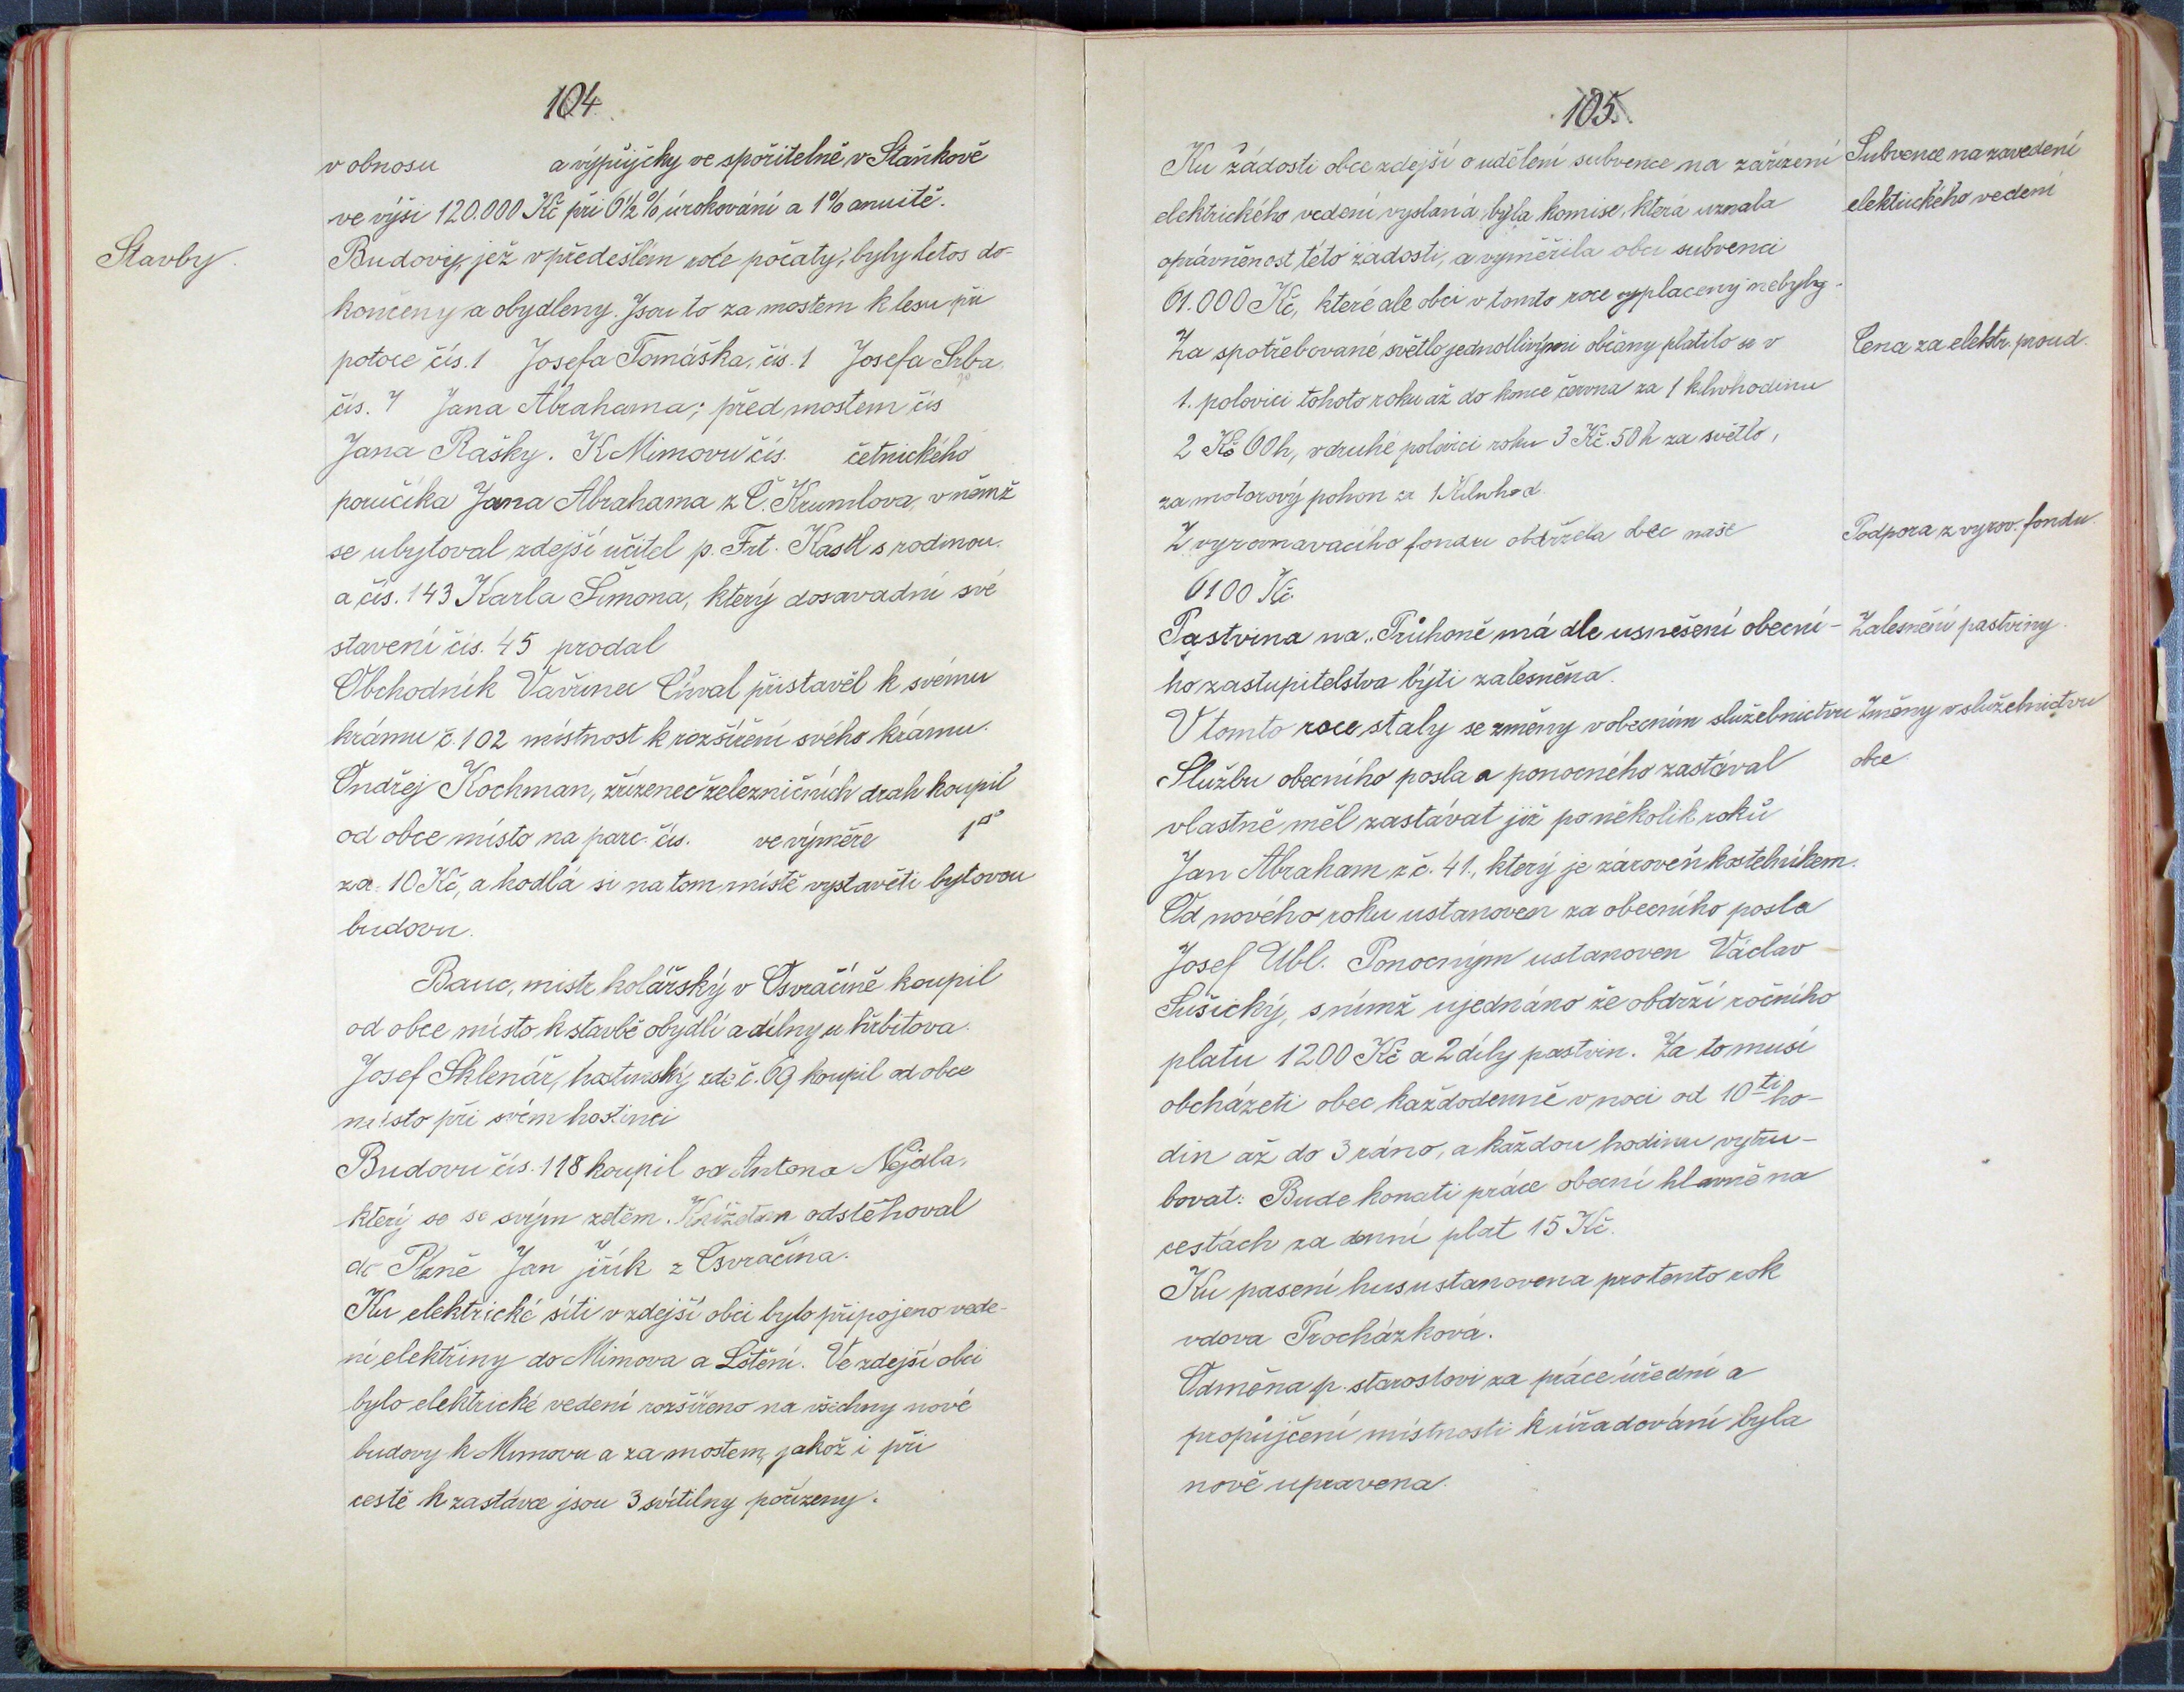 104.
v obnosu a výpůjčky ve spořitelně v Staňkově
ve výši 120.000 Kč při 6½% úrokování a 1% anuitě.
Stavby.
Budovy, jež v předešlém roce počaty, byly letos do-
končeny a obydleny. Jsou to za mostem k lesu při
potoce čís. 1 Josefa Tomáška, čís. 1 Josefa Srba,
čís. 7 Jana Abrahama; před mostem čís
Jana Rašky. K Mimovu čís. četnického
poručíka Jana Abrahama z Č. Krumlova, v němž
se ubytoval zdejší učitel p. Frt. Kastl s rodinou.
a čís. 143 Karla Šimona, který dosavadní své
stavení čís. 45 prodal
Obchodník Vavřinec Cíval přistavěl k svému
krámu č. 102 místnost k rozšíření svého krámu.
Ondřej Kochman, zřízenec železničních drah koupil
od obce místo na parc. čís. ve výměře 1
za 10 Kč, a hodlá si na tom místě vystavěti bytovou
budovu.
Bauc, mistr kolářský v Osvračíně koupil
od obce místo k stavbě obydlí a dílny u hřbitova.
Josef Sklenář, hostinský zde č. 69 koupil od obce
místo při svém hostinci
Budovu čís. 118 koupil od Antona Nejdla,
který se se svým zetěm Knížetem odstěhoval
do Plzně Jan Jiřík z Osvračína.
Ku elektrické síti v zdejší obci bylo připojeno vede-
ní elektřiny do Mimova a Lštění. Ve zdejší obci
bylo elektrické vedení rozšířeno na všechny nové
budovy k Mimovu a za mostem, jakož i při
cestě k zastávce jsou 3 svítilny pořízeny.
105.
Ku žádosti obce zdejší o udělení subvence na zařízení
elektrického vedení vyslaná byla komise, která uznala
oprávněnost této žádosti, a vyměřila obci subvenci
61.000 Kč, které ale obci v tomto roce vyplaceny nebyly.
Subvence na zavedení
elektrického vedení
Za spotřebované světlo jednotlivými občany platilo se v
1. polovici tohoto roku až do konce června za 1 klwhodinu
2 Kč 60 h, v druhé polovici roku 3 Kč. 50 h za světlo,
za motorový pohon za 1 Kilwhod.
Cena za elektr. proud.
Z vyrovnavacího fondu obdržela obec naše
6100 Kč.
Podpora z vyrov. fondu.
Pastvina na „Průhoně má dle usnešení obecní-
ho zastupitelstva býti zalesněna.
Zalesnění pastviny.
V tomto roce staly se změny v obecním služebnictvu
Službu obecního posla a ponocného zastával
vlastně měl zastávat již po několik roků
Jan Abraham z č. 41., který je zároveň kostelníkem.
Od nového roku ustanoven za obecního posla
Josef Ubl. Ponocným ustanoven Václav
Sušický, s nímž ujednáno že obdrží ročního
platu 1200 Kč a 2 díly pastvin. Za to musí
obcházeti obec každodenně v noci od 10ti ho-
din až do 3 ráno, a každou hodinu vytru-
bovat. Bude konati práce obecní hlavně na
cestách za denní plat 15 Kč.
Změny v služebnictvu
obce
Ku pasení hus ustanovena pro tento rok
vdova Procházková.
Odměna p. starostovi za práce úřední a
propůjčení místnosti k úřadování byla
nově upravena.